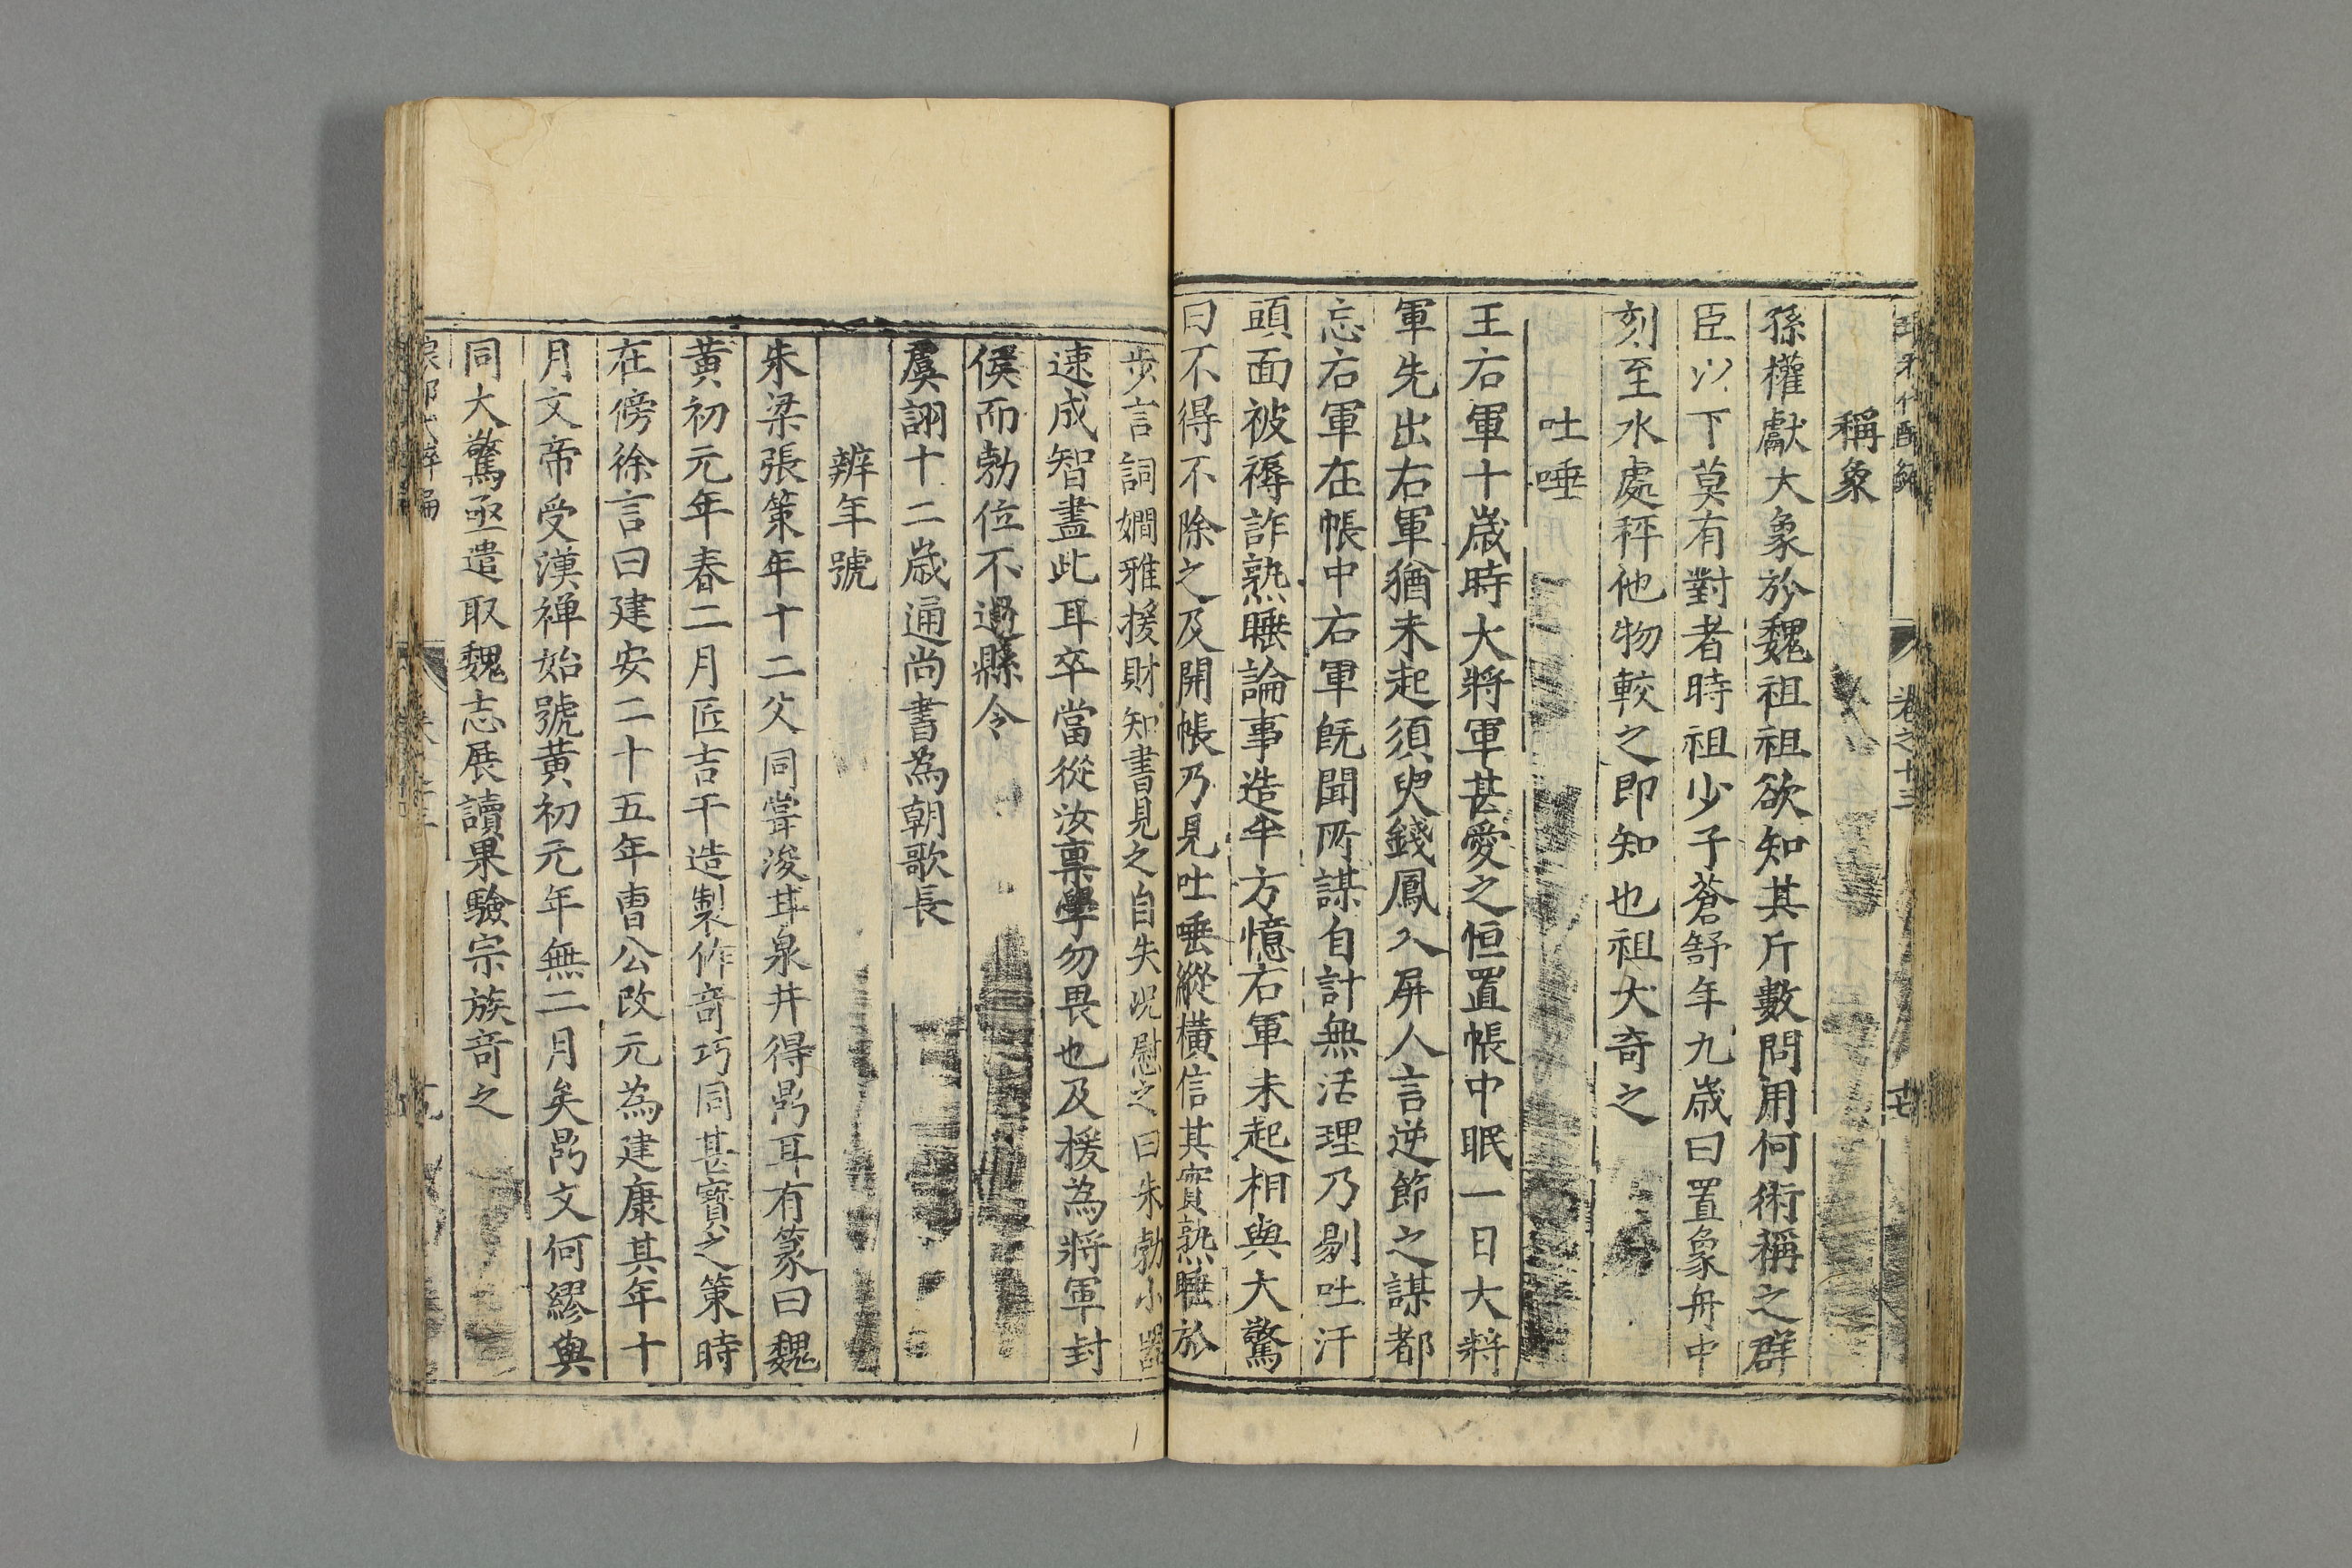 稱象
孫權獻大象於魏祖祖欲知其斤數問用何術稱之群
臣以下莫有對者時祖少子蒼舒年九歲曰置象舟中
刻至水處秤他物較之即知也祖大奇之
吐唾
王右軍十歲時大將軍甚愛之恒置帳中眠一日大將
軍先出右軍猶未起須臾錢鳳入屏人言逆節之謀都
忘右軍在帳中右軍旣聞所謀自計無活理乃剔吐汗
頭面被褥詐熟睡論事造半方憶右軍未起相與大驚
曰不得不除之及開帳乃見吐唾縱橫信其實熟睡於
步言詞嫺雅援財知書見之自失況慰之曰朱勃小器
速成智盡此耳卒當從汝稟學勿畏也及援為將軍封
侯而勃位不過縣令
虞詡十二歲通尚書為朝歌長
辨年號
朱梁張策年十二父同嘗浚甘泉井得鼎耳有篆曰魏
黃初元年春二月匠吉千造製作竒巧同甚寶之策時
在傍徐言曰建安二十五年曹公改元為建康其年十
月文帝受漢禅始號黃初元年無二月矣鼎文何繆輿
同大驚亟遣取魏志展讀果驗宗族竒之
卷之十三